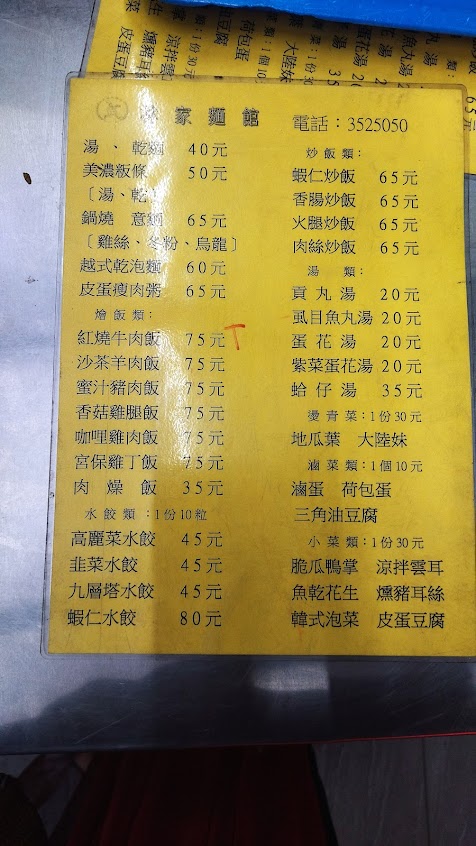 家麵館
電話：3525050
湯、乾麵 40元
美濃粄條 50元
〔湯、乾〕
鍋燒意麵 65元
〔雞絲、冬粉、烏龍〕
越式乾泡麵 60元
皮蛋瘦肉粥 65元
燴飯類：
紅燒牛肉飯 75元
沙茶羊肉飯 75元
蜜汁豬肉飯 75元
香菇雞腿飯 75元
咖哩雞肉飯 75元
宮保雞丁飯 75元
肉燥飯 35元
水餃類：1份10粒
高麗菜水餃 45元
韭菜水餃 45元
九層塔水餃 45元
蝦仁水餃 80元
炒飯類：
蝦仁炒飯 65元
香腸炒飯 65元
火腿炒飯 65元
肉絲炒飯 65元
湯類：
貢丸湯 20元
虱目魚丸湯 20元
蛋花湯 20元
紫菜蛋花湯 20元
蛤仔湯 35元
燙青菜：1份30元
地瓜葉 大陸妹
滷菜類：1個10元
滷蛋 荷包蛋
三角油豆腐
小菜類：1份30元
脆瓜鴨掌 涼拌雲耳
魚乾花生 燻豬耳絲
韓式泡菜 皮蛋豆腐